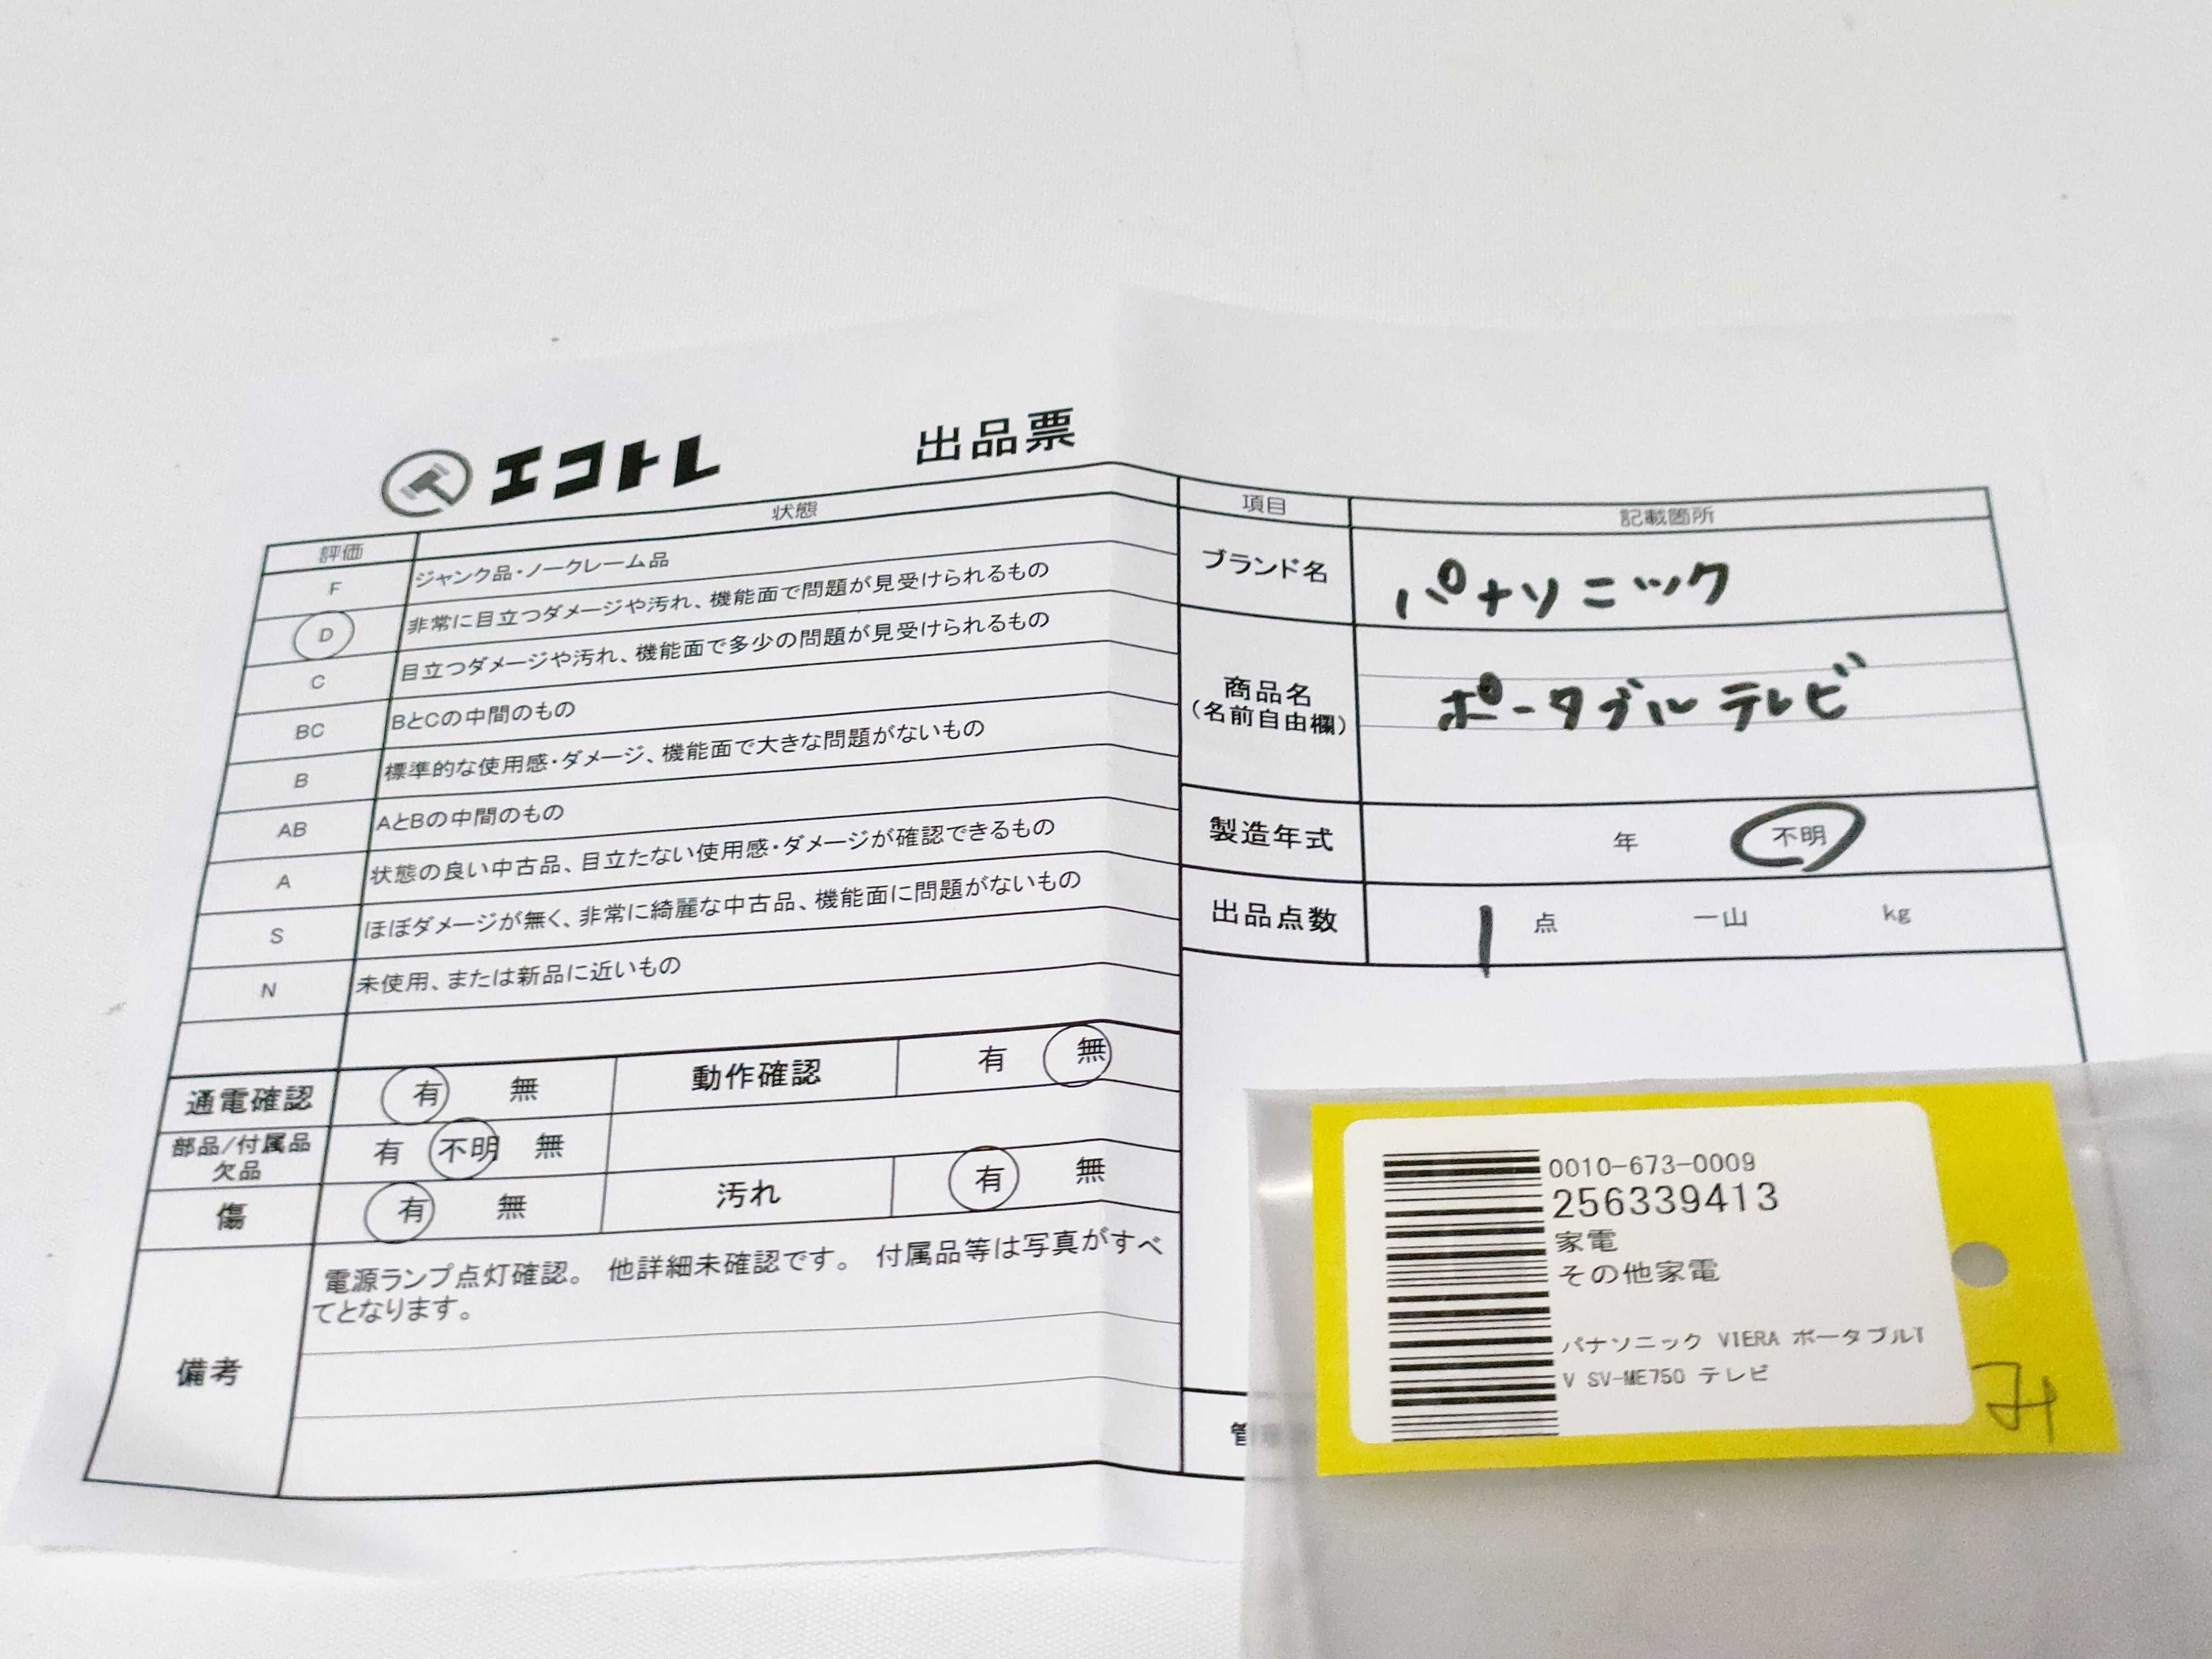 エコトレ 出品票
評価 状態
F ジャンク品・ノークレーム品
D 非常に目立つダメージや汚れ、機能面で問題が見受けられるもの
C 目立つダメージや汚れ、機能面で多少の問題が見受けられるもの
BC BとCの中間のもの
B 標準的な使用感・ダメージ、機能面で大きな問題がないもの
AB AとBの中間のもの
A 状態の良い中古品、目立たない使用感・ダメージが確認できるもの
S ほぼダメージが無く、非常に綺麗な中古品、機能面に問題がないもの
N 未使用、または新品に近いもの
通電確認 有 無 動作確認 有 無
部品/付属品 有 不明 無
欠品
傷 有 無 汚れ 有 無
備考
電源ランプ点灯確認。 他詳細未確認です。 付属品等は写真がすべ
てとなります。
項目 記載箇所
ブランド名 パナソニック
商品名 ポータブルテレビ
(名前自由欄)
製造年式 年 不明
出品点数 1 点 一山 kg
管
0010-673-0009
256339413
家電
その他家電
パナソニック VIERA ポータブルT
V SV-ME750 テレビ